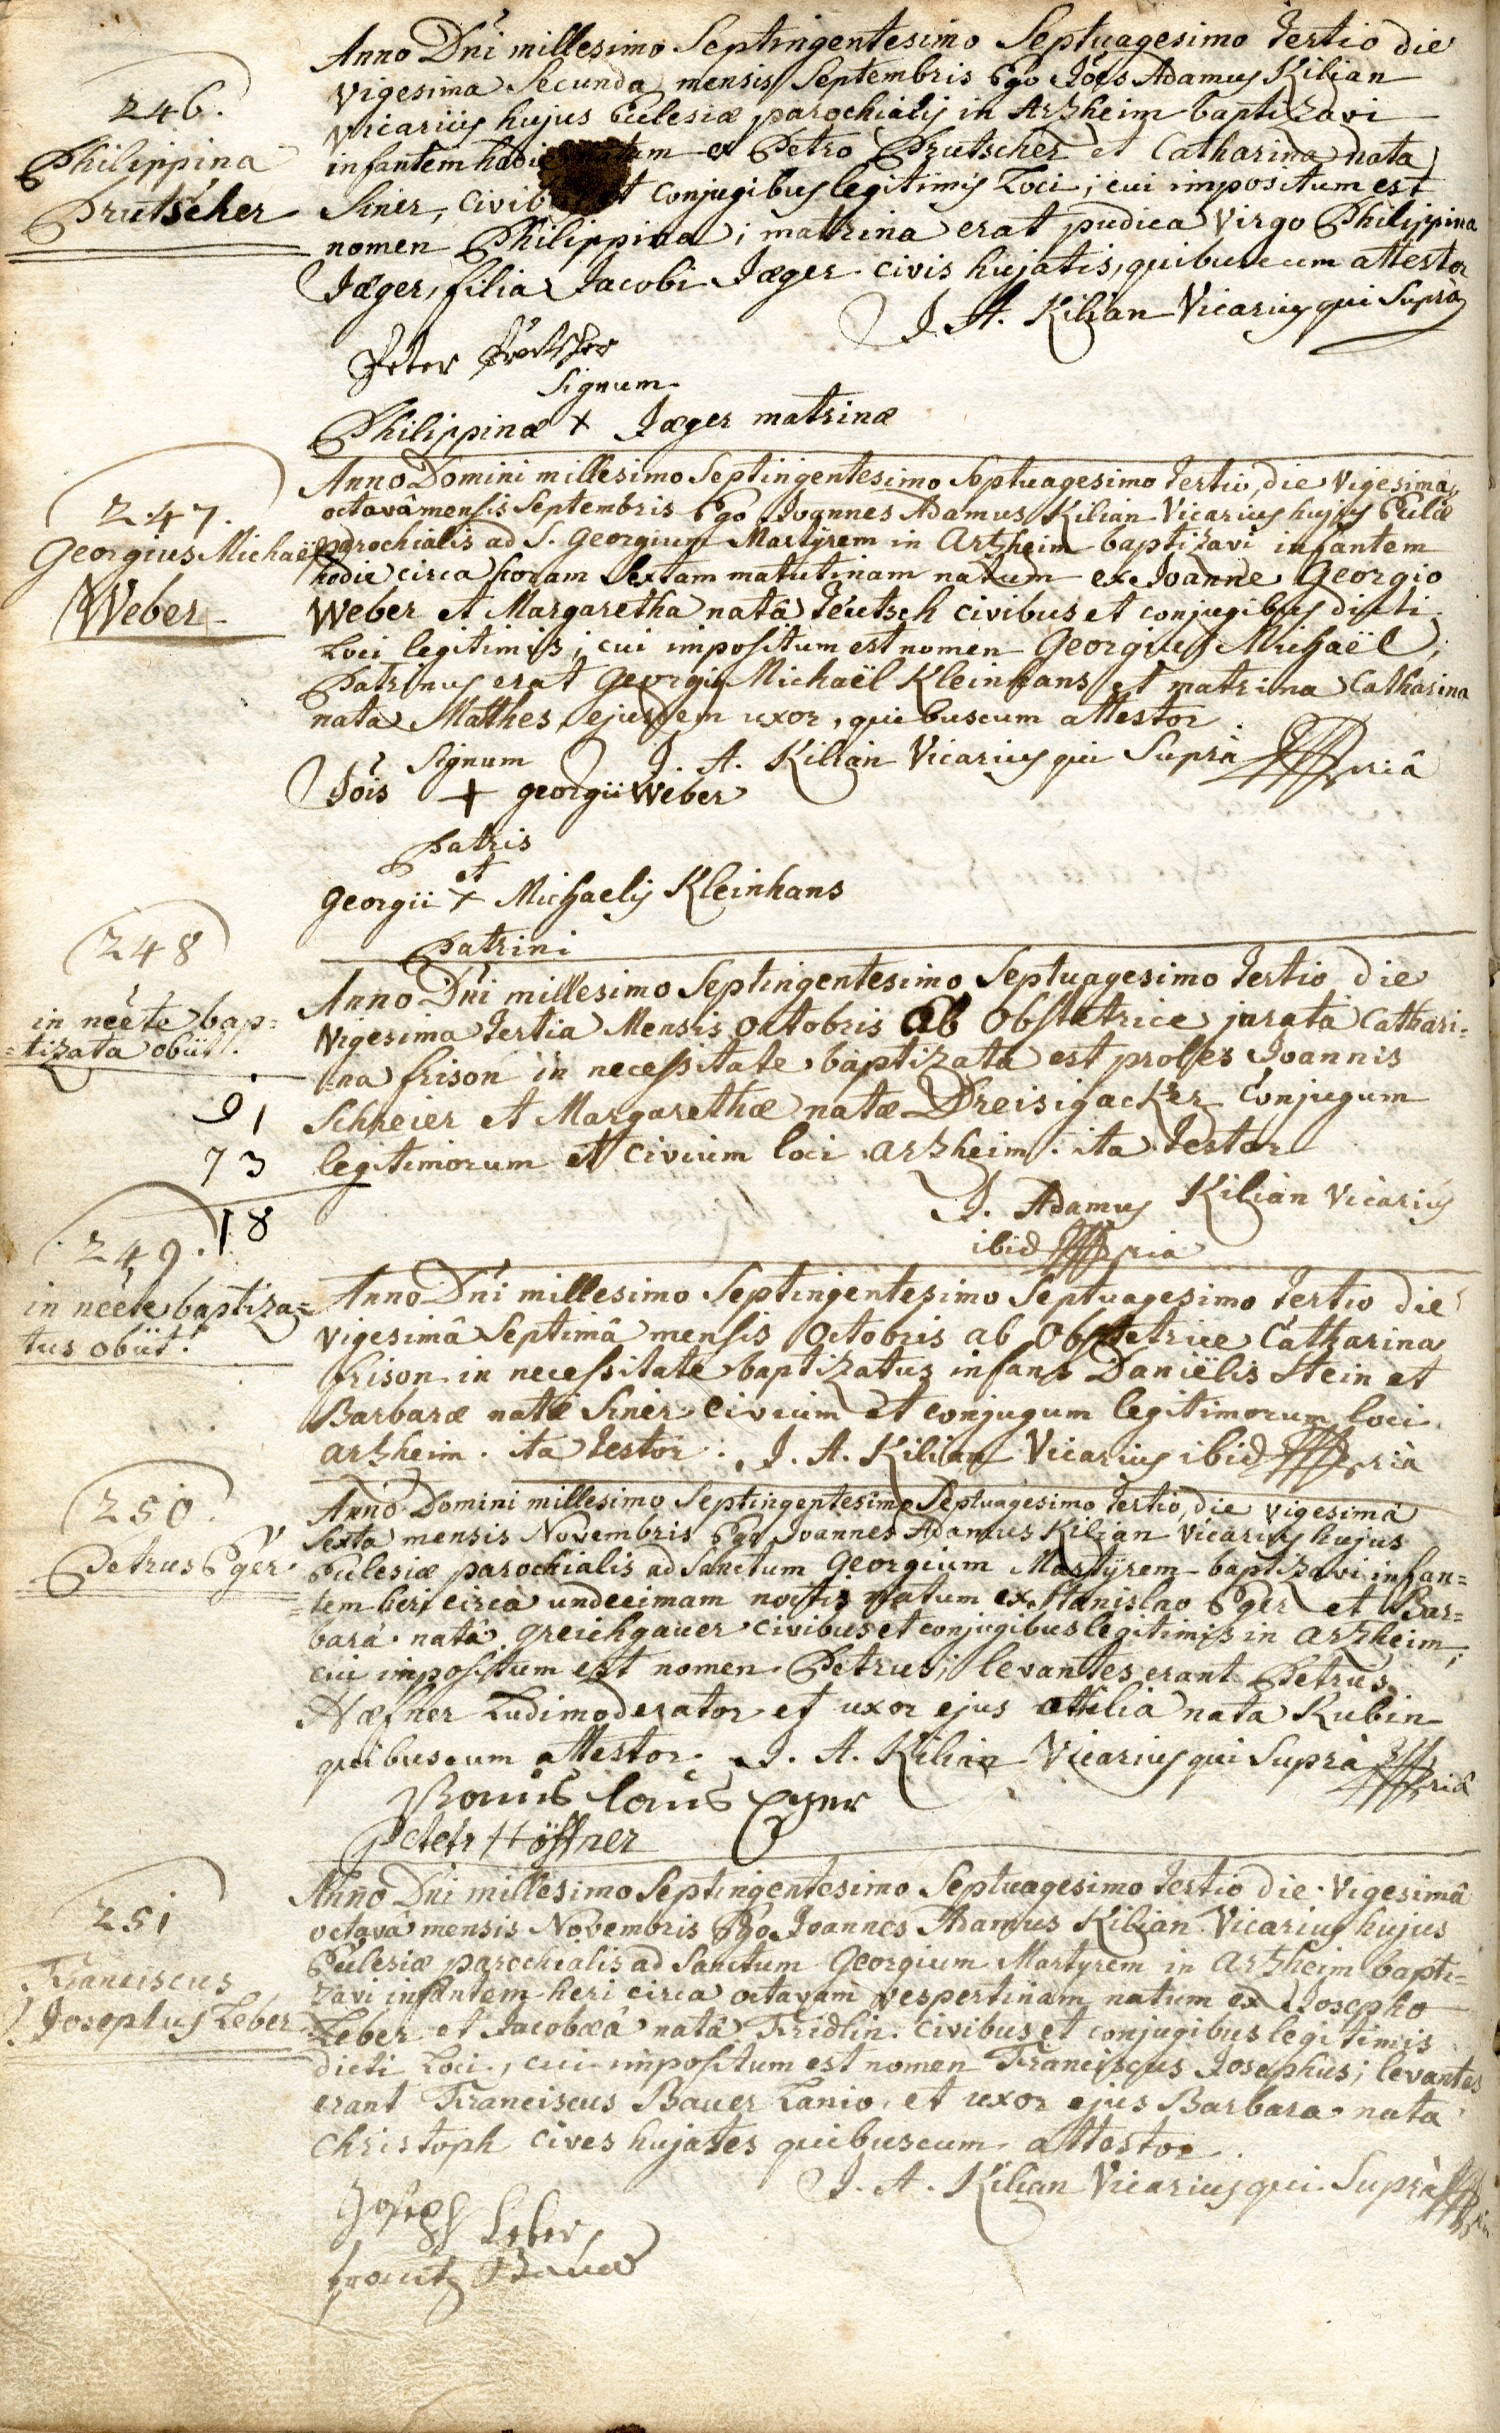 246.
Philippina
Prutscher
Anno Dni millesimo Septingentesimo Septuagesimo tertio die
Vigesima Secunda mensis Septembris Ego Jöes Adamus Kilian
Vicarius hujus Eclesiæ parochialis in Arzheim baptizavi
infantem hodie natam ex Petro Prutscher et Catharina nata
Siner, civibus et conjugibus legitimis Loci; cui impositum est
nomen Philippina; matrina erat pudica Virgo Philippina
Jæger, filia Jacobi Jæger civis hujatis, quibuscum attestor
J. A. Kilian Vicarius qui Suprà
Peter Prutscher
Signum
Philippinæ + Jæger matrinæ
247.
Georgius Michaël
Weber
Anno Domini millesimo Septingentesimo Septuagesimo tertio, die Vigesimâ
octavâ mensis Septembris Ego Joannes Adamus Kilian Vicarius hujus Eclæ
parochialis ad S. Georgium Martyrem in Artzheim baptizavi infantem
hodie circa horam Sextam matutinam natum ex Joanne Georgio
Weber et Margaretha natâ Teutsch civibus et conjugibus dicti
Loci legitimis; cui impositum est nomen Georgius Michaël;
Patrinus erat Georgius Michaël Kleinhans et matrina Catharina
nata Mathes ejusdem uxor, quibuscum attestor.
J. A. Kilian Vicarius qui Suprà mpriâ
Signum
Jöis + georgii Weber
Patris
et
Georgii + Michaelis Kleinhans
Patrini
248
in neëte bap=
=tizata obiit.
91
73
18
Anno Dni millesimo Septingentesimo Septuagesimo tertio die
Vigesima tertia Mensis Octobris ab Obstetrice jurata Cathari=
=na frison in necessitate baptizata est proles Joannis
Schreier et Margarethæ natæ Dreisigacker Conjugum
legitimorum et civium loci arzheim. ita testor
J. Adamus Kilian Vicarius
ibid mpria
249.
in neëte baptiza=
tus obiit.
Anno Dni millesimo Septingentesimo Septuagesimo tertio die
Vigesimâ Septimâ mensis Octobris ab Obstetrice Catharina
frison in necessitate baptizatus infans Daniëlis Stein et
Barbaræ natæ Siner civium et conjugum legitimorum loci
arzheim. ita testor. J. A. Kilian Vicarius ibid mpriâ
250.
Petrus Eger
Anno Domini millesimo Septingentesimo Septuagesimo tertio, die vigesimâ
Sexta mensis Novembris Ego Joannes Adamus Kilian Vicarius hujus
Eclesiæ parochialis ad Sanctum Georgium Martyrem baptizavi infan=
=tem heri circa undecimam noctis natum ex Stanislao Eger et Bar=
barâ natâ greichgauer civibus et conjugibus legitimis in arzheim;
cui impositum est nomen Petrus; levantes erant Petrus
Hæfner Ludimoderator et uxor ejus Ottilia nata Rubin
quibuscum attestor. J. A. Kilian Vicarius qui Suprà mpriâ
Eger
Peter Höffner
251
Franciscus
Josephus Leber
Anno Dni millesimo Septingentesimo Septuagesimo tertio die Vigesimâ
octavâ mensis Novembris Ego Joannes Adamus Kilian Vicarius hujus
Eclesiæ parochialis ad Sanctum Georgium Martyrem in arzheim bapti=
zavi infantem heri circa octavam vespertinam natum ex Josepho
Leber et Jacobæâ natâ Fridlin civibus et conjugibus legitimis
dicti Loci, cui impositum est nomen Franciscus Josephus; levantes
erant Franciscus Bauer Lanio, et uxor ejus Barbara nata
Christoph cives hujates quibuscum attestor.
J. A. Kilian Vicarius qui Suprà
Joseph Leber
frantz Bauer